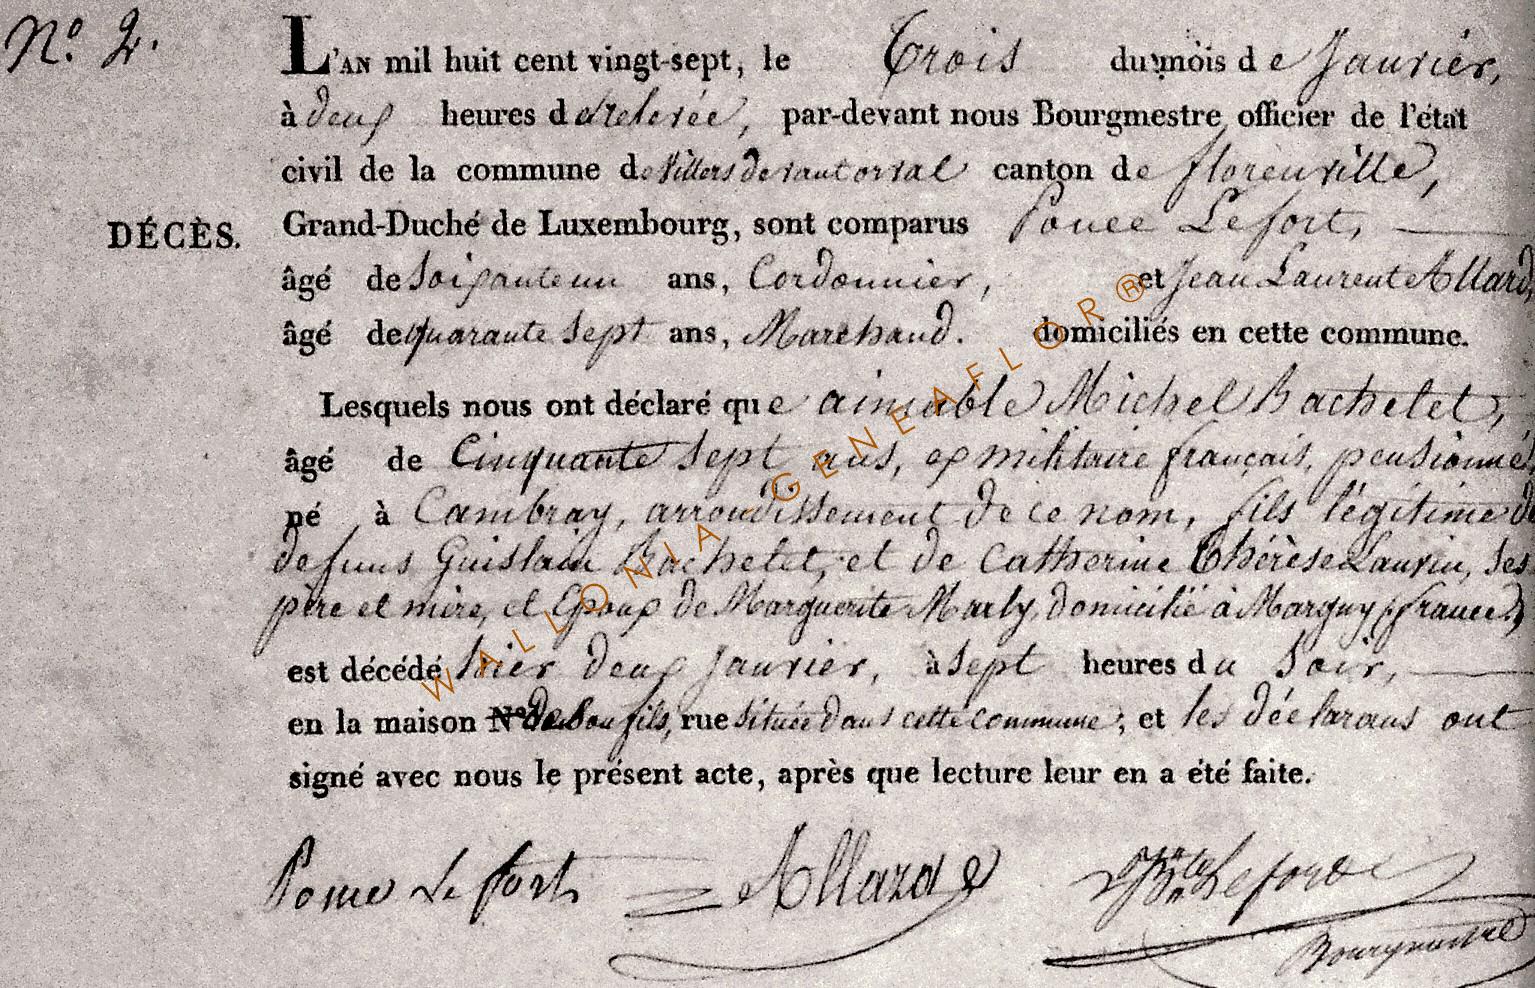 N.º 2.
L'AN mil huit cent vingt-sept, le Trois du mois de Janvier,
à deux heures de relevée, par-devant nous Bourgmestre officier de l'état
civil de la commune de Villers devant orval canton de florenville,
DÉCÈS. Grand-Duché de Luxembourg, sont comparus Ponce Lefort,
âgé de soixante un ans, Cordonnier, et Jean Laurent Allard,
âgé de quarante sept ans, Marchand. domiciliés en cette commune.
Lesquels nous ont déclaré que aimable Michel Bachelet,
âgé de Cinquante sept ans, ex militaire français, pensionné,
né à Cambray, arrondissement de ce nom, fils légitime de
defuns Guislain Bachelet, et de Catherine Thérèse Lauvin, ses
père et mère, et Epoux de Marguerite Marly, domicilié à Margny (france)
est décédé hier deux Janvier, à sept heures du soir,
en la maison Nº de son fils, rue située dans cette commune, et les déclarans ont
signé avec nous le présent acte, après que lecture leur en a été faite.
Lefort Allard Lefort
Bourgmestre
WALLONIA GENEAFLOR®